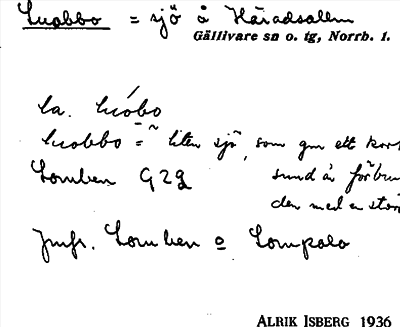 Luobbo = sjö å Häradsallm
Gällivare sn o. tg, Norrb. l.
la. luobo
luobbo = liten sjö, som gm ett kort
Lomben G2g sund är förbun
den med en stör
Jmfr. Lomben o Lompolo
ALRIK ISBERG 1936